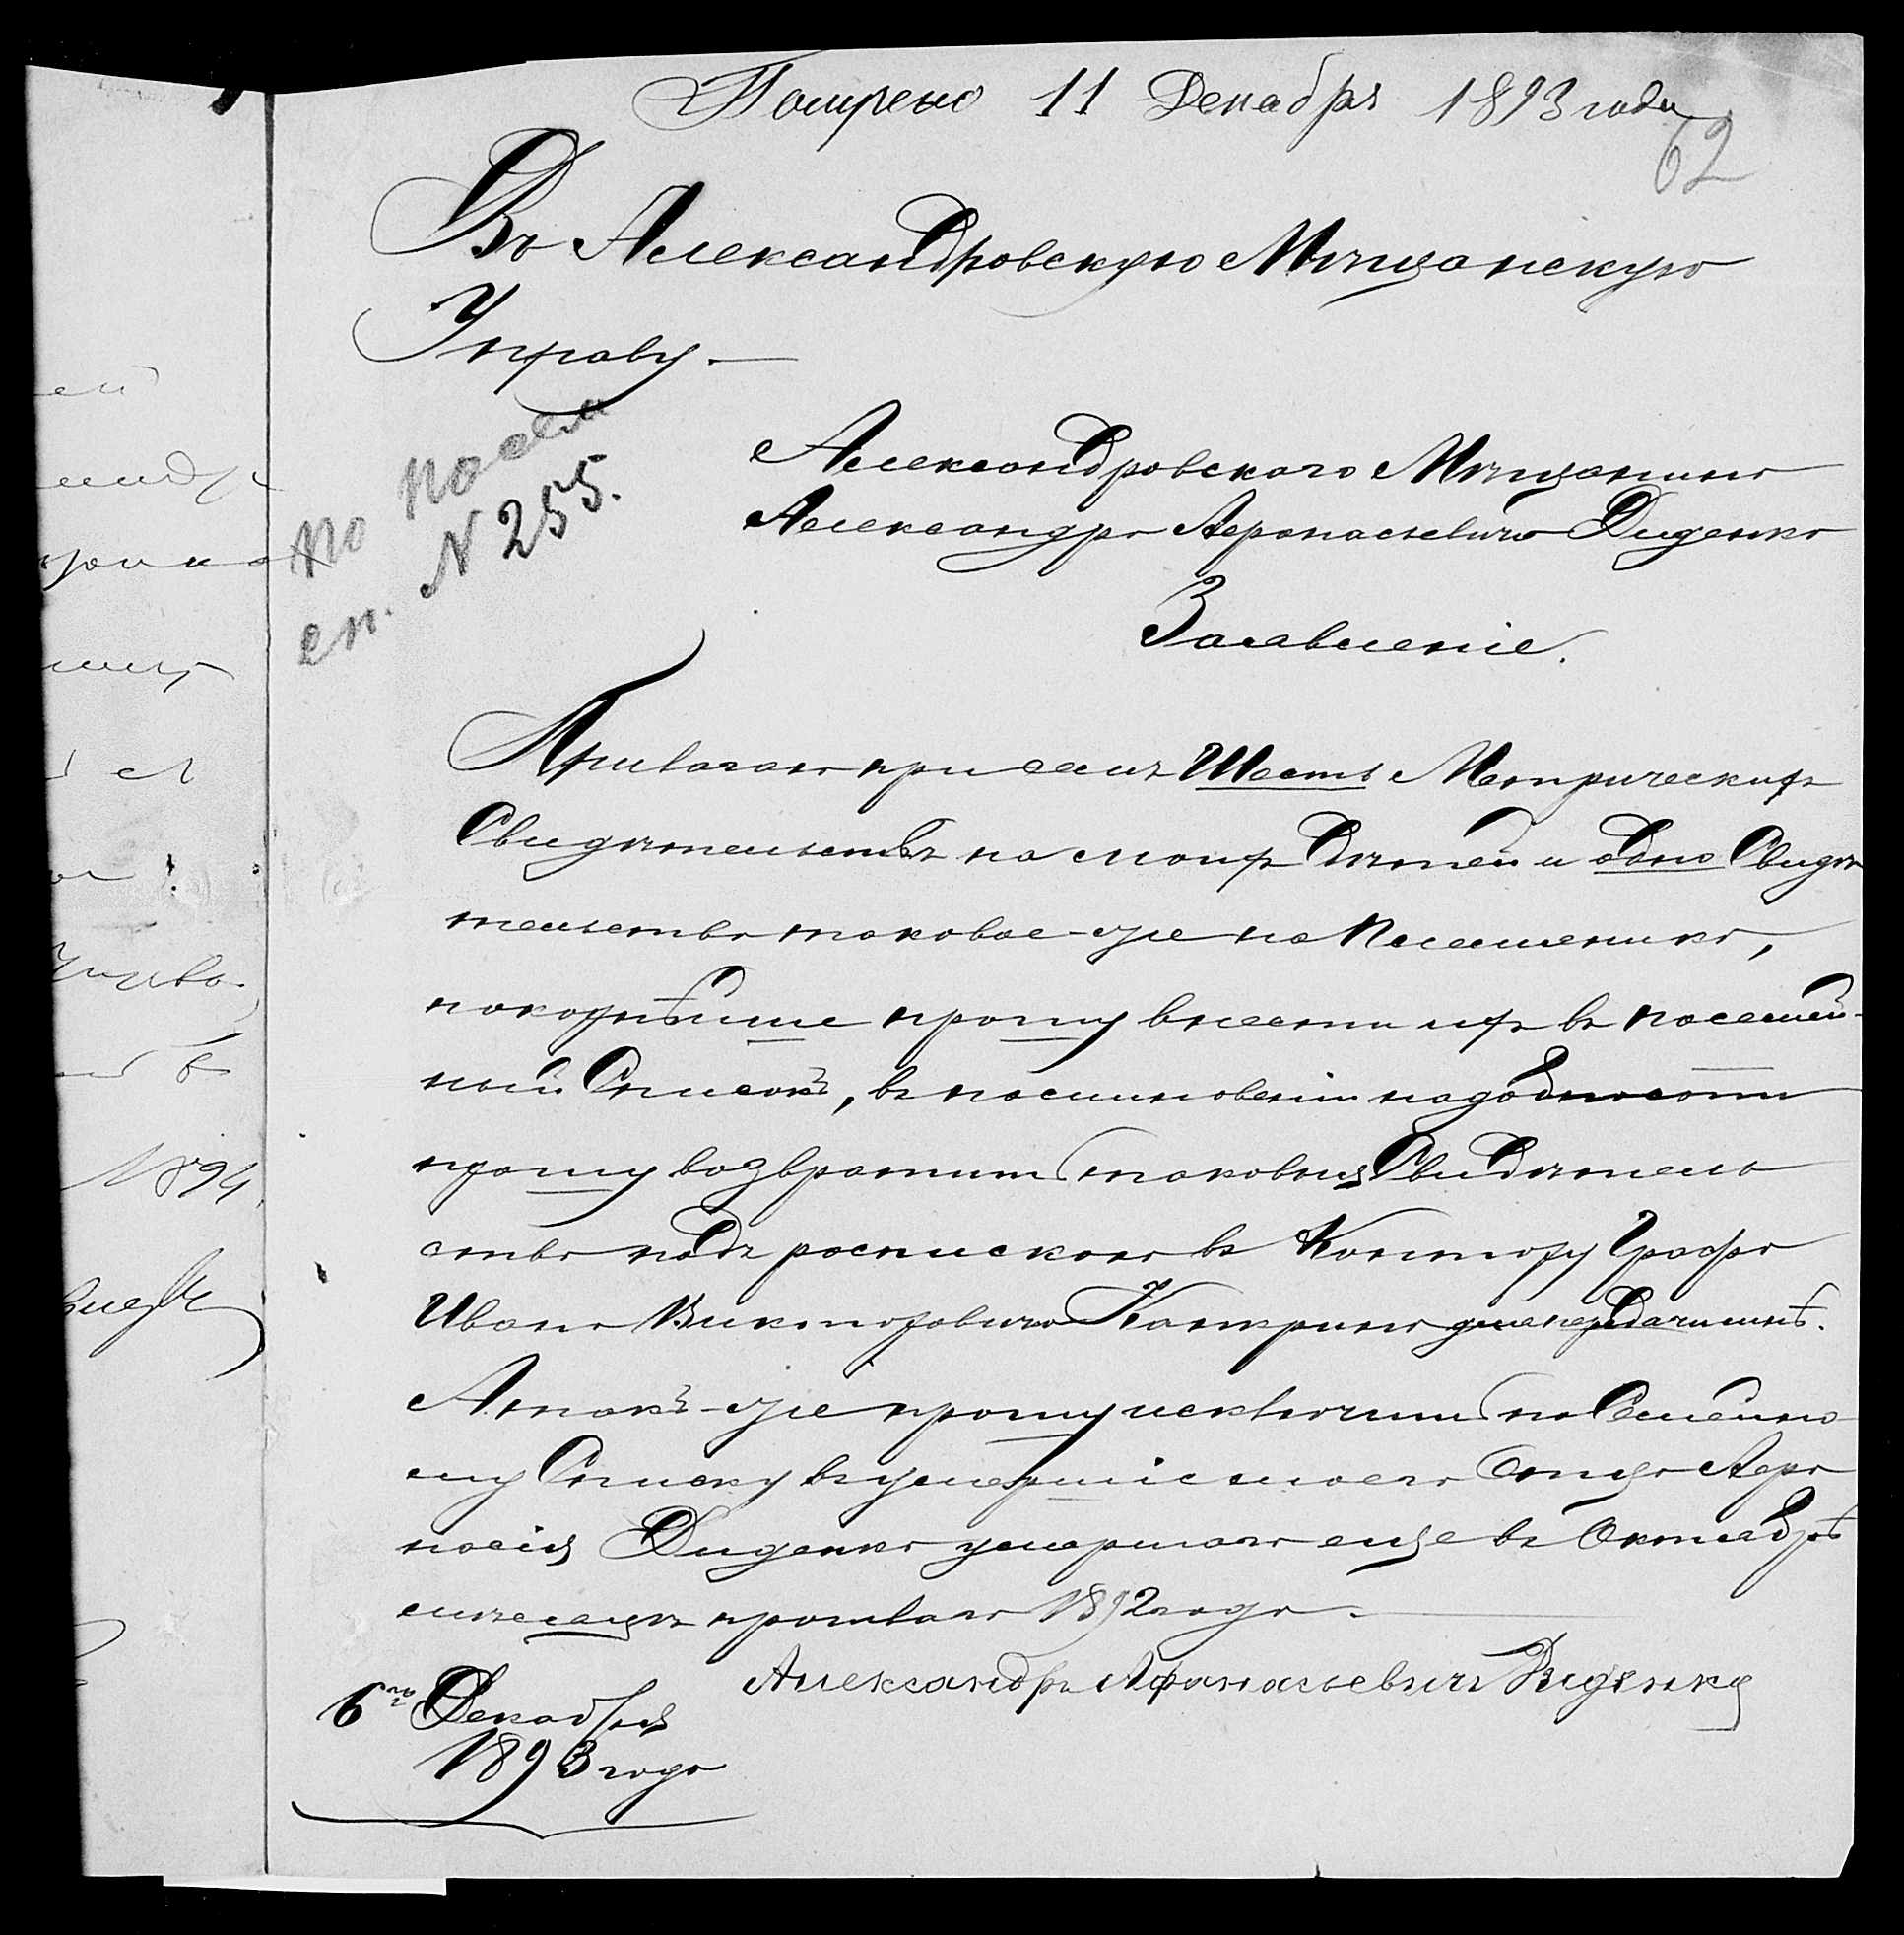 Получено 11 Декабря 1893 года
62
Въ Александровскую Мѣщанскую
Управу.
по посем
сп. № 255.
Александровскаго Мѣщанина
Александра Афанасьевича Диденко
Заявленіе.
Прилагаю при семъ Шесть Метрическихъ
Свидѣтельствъ на моихъ Дѣтей и одно Свидѣ
тельство таковое-же на Племянника,
покорнѣйше прошу внести ихъ въ посемей-
ный Списокъ, въ посминовеніи надобности
прошу возвратить таковыя Свидѣтель
ства подъ росписку въ Контору Графа
Ивана Викторовича Канкрина для передачи мнѣ.
А такъ-же прошу исключить по Семейно
му Списку въ умершіе моего Отца Афа
насія Диденко умершаго еще въ Октябрѣ
мѣсяцѣ прошлаго 1892 года.
Александръ Афанасьевичъ Диденко
6го Декабря
1893 года
1894